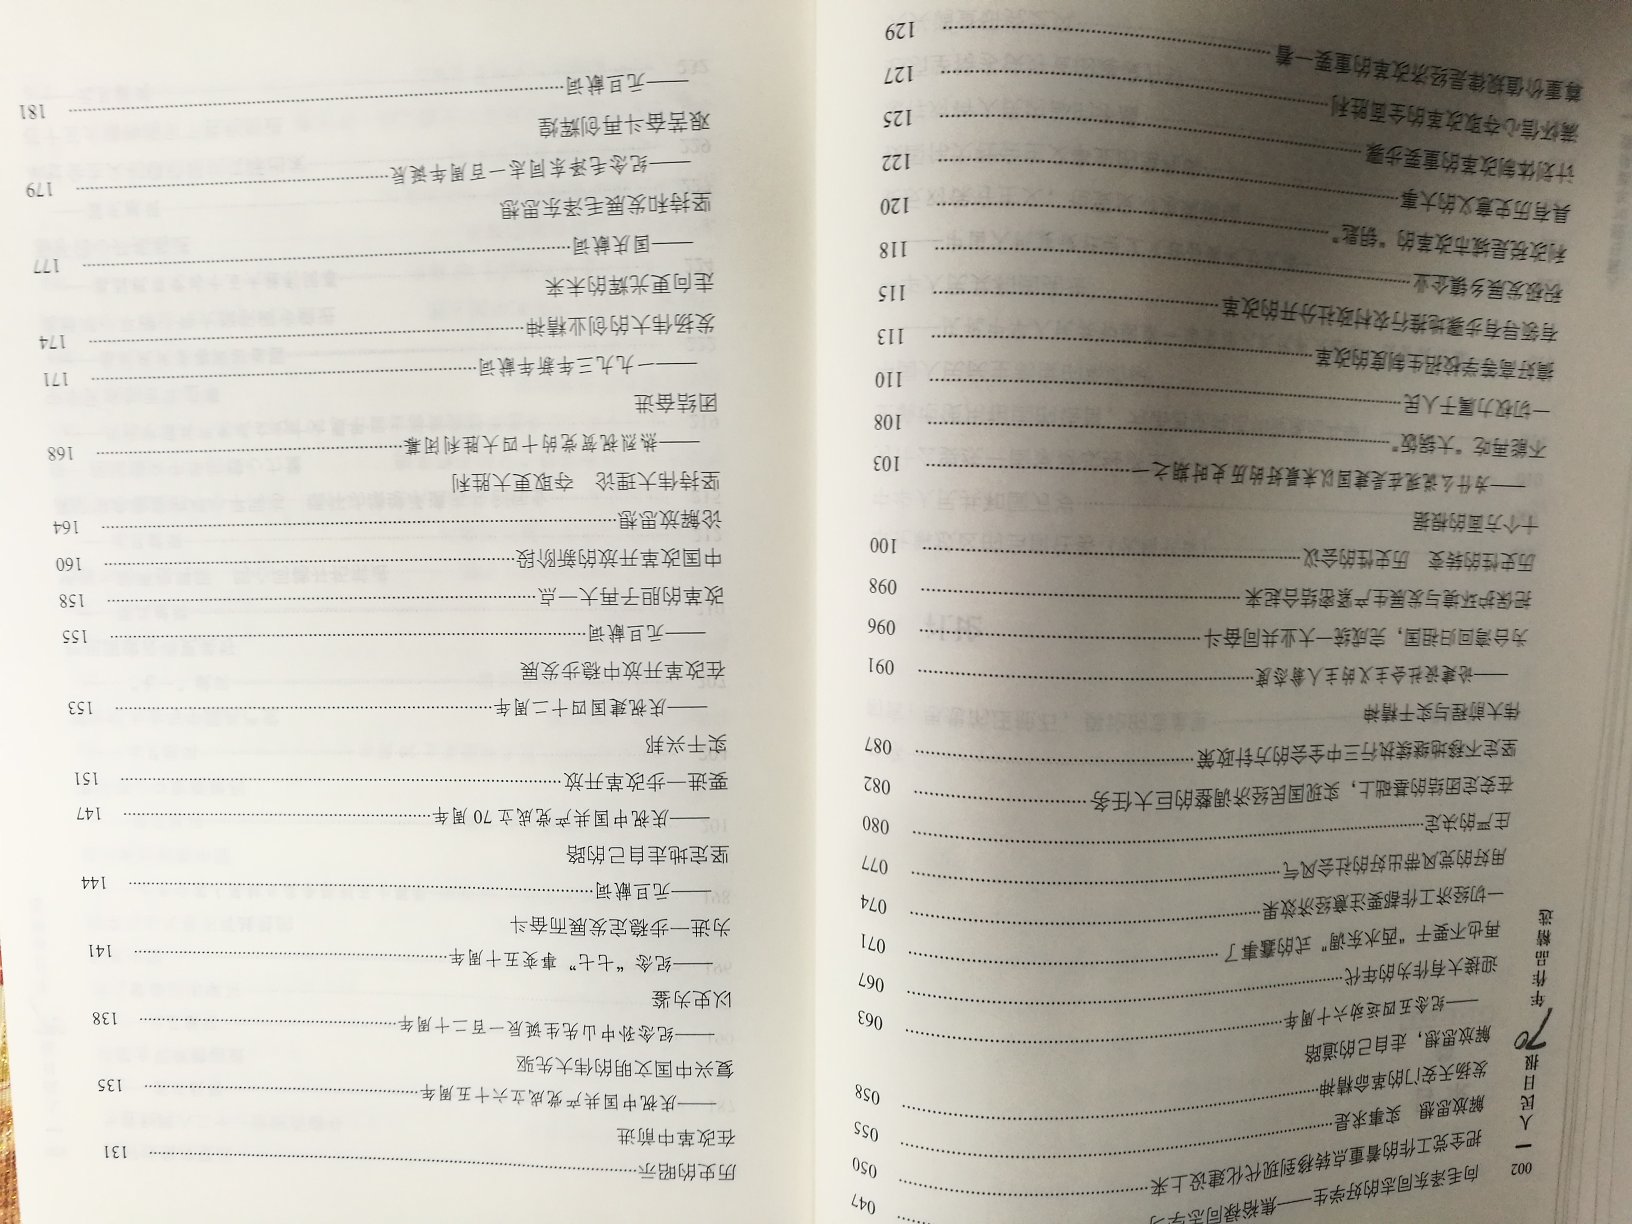 002 一 人民日报 70 年作品精选
向毛泽东同志的好学生——焦裕禄同志学习 047
把全党工作的着重点转移到现代化建设上来 050
解放思想 实事求是 055
发扬天安门的革命精神 058
解放思想，走自己的道路
——纪念五四运动六十周年 063
迎接大有作为的年代 067
再也不要干“西水东调”式的蠢事了 071
一切经济工作都要注意经济效果 074
用好的党风带出好的社会风气 077
庄严的决定 080
在安定团结的基础上，实现国民经济调整的巨大任务 082
坚定不移地继续执行三中全会的方针政策 087
伟大前程与实干精神
——论建设社会主义的主人翁态度 091
为台湾回归祖国，完成统一大业共同奋斗 096
把保护环境与发展生产紧密结合起来 098
历史性的转变 历史性的会议 100
十个方面的根据
——为什么说现在是建国以来最好的历史时期之一 103
不能再吃“大锅饭” 108
一切权力属于人民 110
搞好高等学校招生制度的改革 113
有领导有步骤地推行农村政社分开的改革 115
积极发展乡镇企业 118
利改税是城市改革的“钥匙” 120
具有历史意义的大事 122
计划体制改革的重要步骤 125
满怀信心夺取改革的全面胜利 127
尊重价值规律是经济改革的重要一着 129
历史的昭示 131
在改革中前进
——庆祝中国共产党成立六十五周年 135
复兴中国文明的伟大先驱
——纪念孙中山先生诞辰一百二十周年 138
以史为鉴
——纪念“七七”事变五十周年 141
为进一步稳定发展而奋斗
——元旦献词 144
坚定地走自己的路
——庆祝中国共产党成立 70 周年 147
要进一步改革开放 151
实干兴邦
——庆祝建国四十二周年 153
在改革开放中稳步发展
——元旦献词 155
改革的胆子再大一点 158
中国改革开放的新阶段 160
论解放思想 164
坚持伟大理论 夺取更大胜利
——热烈祝贺党的十四大胜利闭幕 168
团结奋进
——一九九三年新年献词 171
发扬伟大的创业精神 174
走向更光辉的未来
——国庆献词 177
坚持和发展毛泽东思想
——纪念毛泽东同志一百周年诞辰 179
艰苦奋斗再创辉煌
——元旦献词 181